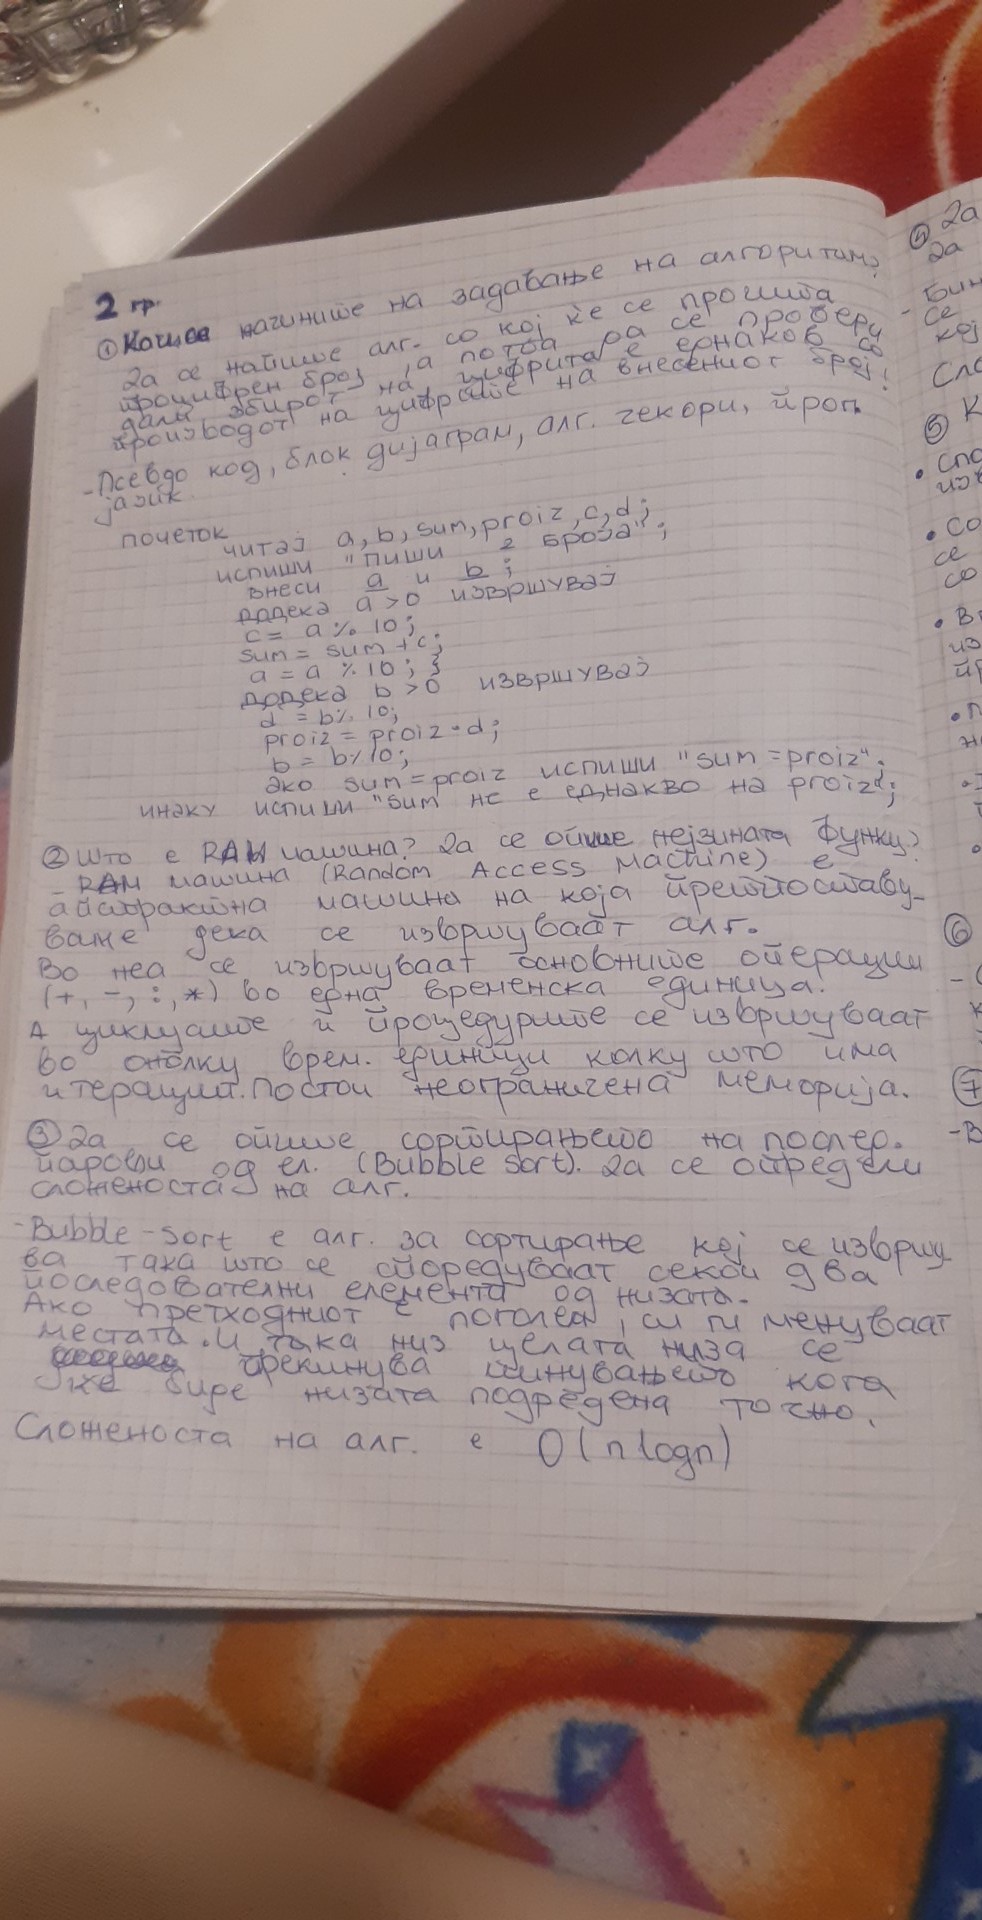 2 гр.
① Кои се начините на задавање на алгоритам?
Да се напише алг. со кој ќе се прочита
троцифрен број, а потоа да се провери
дали збирот на цифрите е еднаков со
производот на цифрите на внесениот број!
- Псевдо код, блок дијаграм, алг. чекори, прог.
јазик.
почеток
читај a, b, sum, proiz, c, d;
испиши "пиши 2 броја";
внеси a и b;
додека a > 0 извршувај
c = a % 10;
sum = sum + c;
a = a % 10; }
додека b > 0 извршувај
d = b % 10;
proiz = proiz * d;
b = b % 10;
ако sum = proiz испиши "sum = proiz".
инаку испиши "sum не е еднакво на proiz";
② Што е RAM машина? Да се опише нејзината функц?
- RAM машина (Random Access Machine) е
апстрактна машина на која претпоставу-
ваме дека се извршуваат алг.
Во неа се извршуваат основните операции
(+, -, :, *) во една временска единица.
А циклусите и процедурите се извршуваат
во онолку врем. единици колку што има
итерации. Постои неограничена меморија.
③ Да се опише сортирањето на послед.
парови од ел. (Bubble sort). Да се определи
сложеноста на алг.
- Bubble-sort е алг. за сортирање кој се изврш
ва така што се споредуваат секои два
последователни елемента од низата.
Ако претходниот е поголем, си ги менуваат
местата. И така низ целата низа се
прекинува минувањето кога
ќе биде низата подредена точно.
Сложеноста на алг. е O(n logn)
④ Да
да
- Бин
се
кој
Сло
⑤ К
• спо
изв
• со
се
со
⑥
⑦
- В